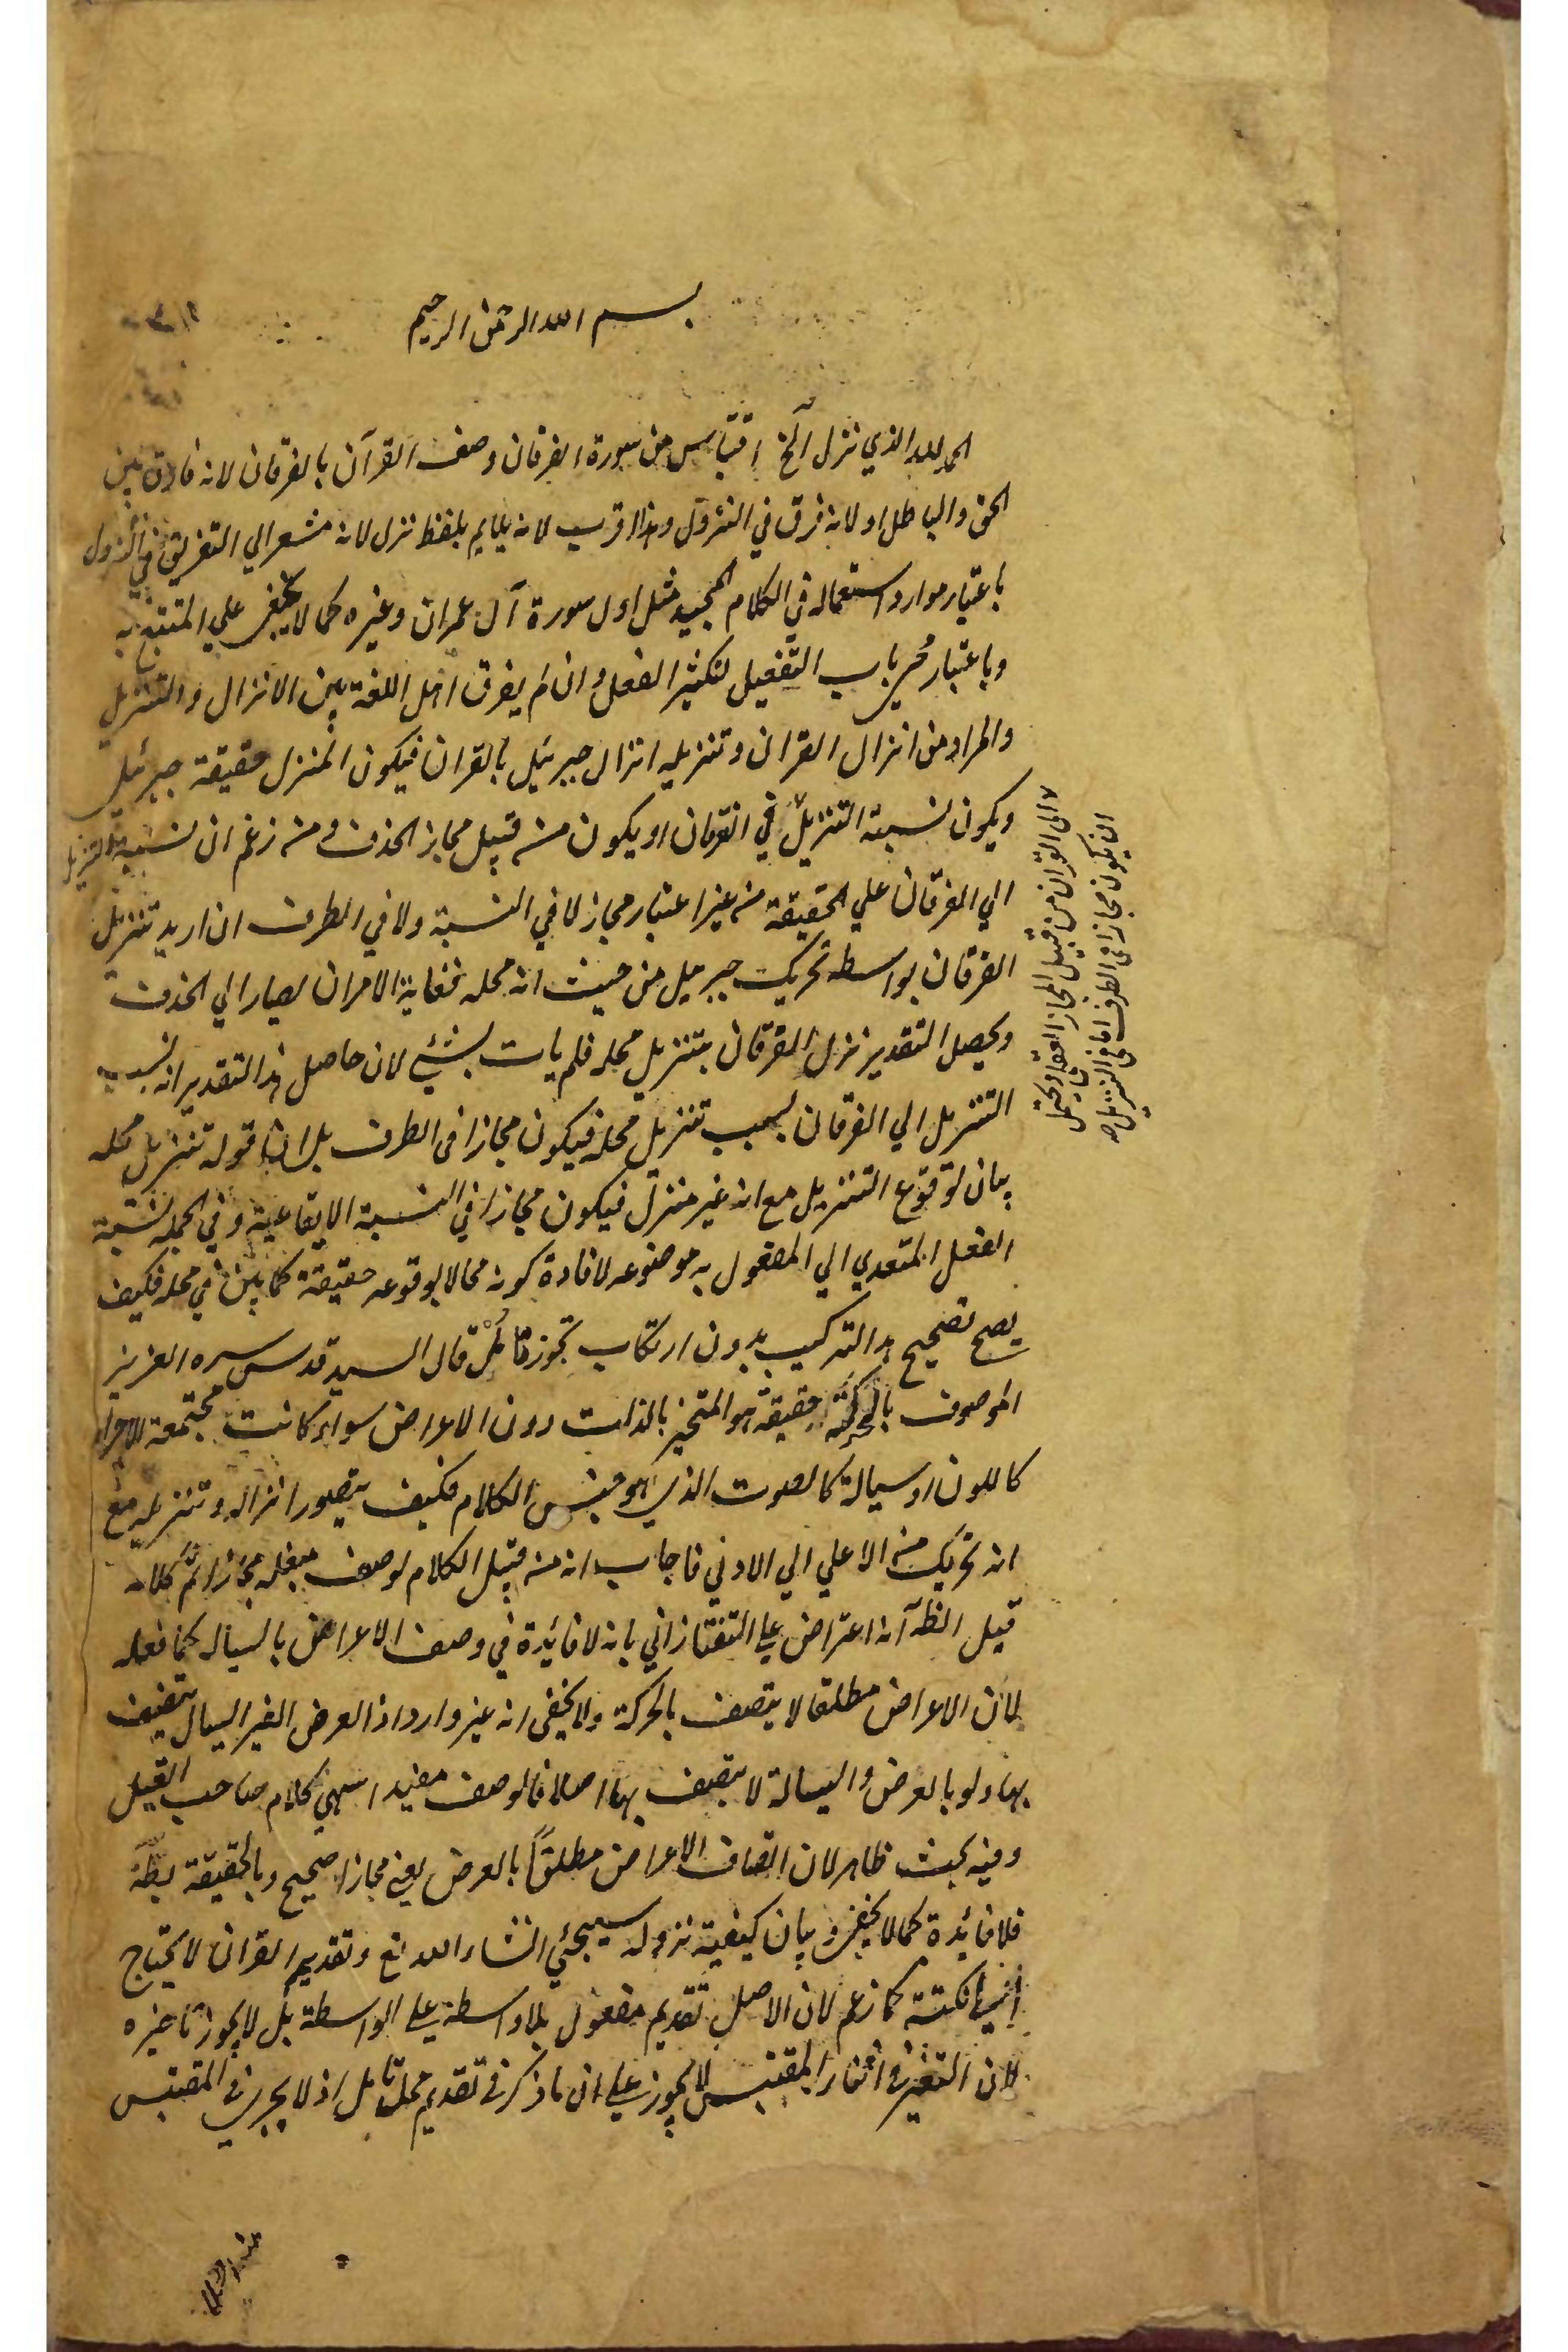 بسم الله الرحمن الرحيم
الحمد لله الذي نزل آلخ اقتباس من سورة الفرقان وصف القرآن بالفرقان لانه فارق بين
الحق والباطل او لانه فرق في النزول وهذا اقرب لانه يلايم بلفظ نزل لانه مشعر الي التفريق في النزول
باعتبار موارد استعماله في الكلام المجيد مثل اول سورة آل عمران وغيره كما لا يخفى علي المتتبع به
وباعتبار مجي باب التفعيل لتكثير الفعل وان لم يفرق اهل اللغة بين الانزال والتنزيل
والمراد من انزال القران وتنزيله انزال جبرئيل بالقران فيكون المنزل حقيقة جبرئيل
ويكون نسبة التنزيل في الفرقان او يكون من قبيل مجاز الحذف ومن زعم ان نسبة التنزيل
الي الفرقان علي الحقيقة من غير اعتبار مجاز لا في النسبة ولا في الطرف ان اريد تنزيل
الفرقان بواسطه تحريك جبرئيل من حيث انه محله فغاية الامر ان يصار الي الحذف
ويحصل التقدير نزل الفرقان بتنزيل محله فلم يات بشئي لان حاصل هذا التقدير انه نسب
التنزيل الي الفرقان بسبب تنزيل محله فيكون مجازا في الطرف بل ان قوله تنزيل محله
بيان لوقوع التنزيل مع انه غير منزل فيكون مجازا في النسبة الايقاعية وفي الجملة نسبة
الفعل المتعدي الي المفعول به موضوعه لافادة كونه محالا لوقوعه حقيقة كما بين في محله فكيف
يصح تصحيح هذا التركيب بدون ارتكاب تجوز فتامل قال السيد قدس سره العزيز
الموصوف بالحركة حقيقة هو المتحيز بالذات دون الاعراض سواء كانت مجتمعة الاجزاء
كاللون او سيالة كالصوت الذي هو جنس الكلام فكيف يتصور انزاله وتنزيله مع
انه تحريك من الاعلي الي الادني فاجاب انه من قبيل الكلام لوصف مبلغه مجازا تم كلامه
قيل الظه آنه اعتراض علي التفتازاني بانه لا فائدة في وصف الاعراض بالسيالة كما فعله
لان الاعراض مطلقا لا يتصف بالحركة ولا يخفى انه غير وارد اذ العرض الغير السيال يتصف
بها ولو بالعرض والسيالة لا يتصف بها اصلا فالوصف مفيد انتهي كلام صاحب القيل
وفيه بحث ظاهر لان اتصاف الاعراض مطلقاً بالعرض يعني مجازا صحيح وبالحقيقة بط
فلا فائدة كما لا يخفى وبيان كيفية نزوله سيجئي انشاء الله تع وتقديم القران لا يحتاج
الي نكتة كما زعم لان الاصل تقديم مفعول بلا واسطة علي الواسطة بل لا يجوز تاخيره
لان التغير في اثناء المقتبس لا يجوز علي ان ما ذكر في تقديم محل تامل اذ لا يجري في المقتبس
الى القران من قبيل المجاز العقلي ويحتمل
ان يكون مجازا في الطرف اما في التنزيل